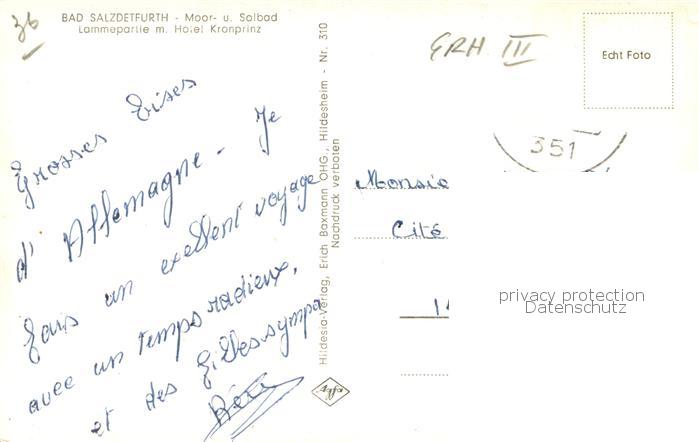 36
BAD SALZDETFURTH - Moor- u. Solbad
Lammepartie m. Hotel Kronprinz
GRH III
Echt Foto
351
Grosses bises
d'Allemagne - Je
fais un exellent voyage
avec un temps radieux,
et des filles sympa
Hildesia-Verlag, Erich Baxmann OHG., Hildesheim - Nr. 310
Nachdruck verboten
Monsie
Cité
privacy protection
Datenschutz